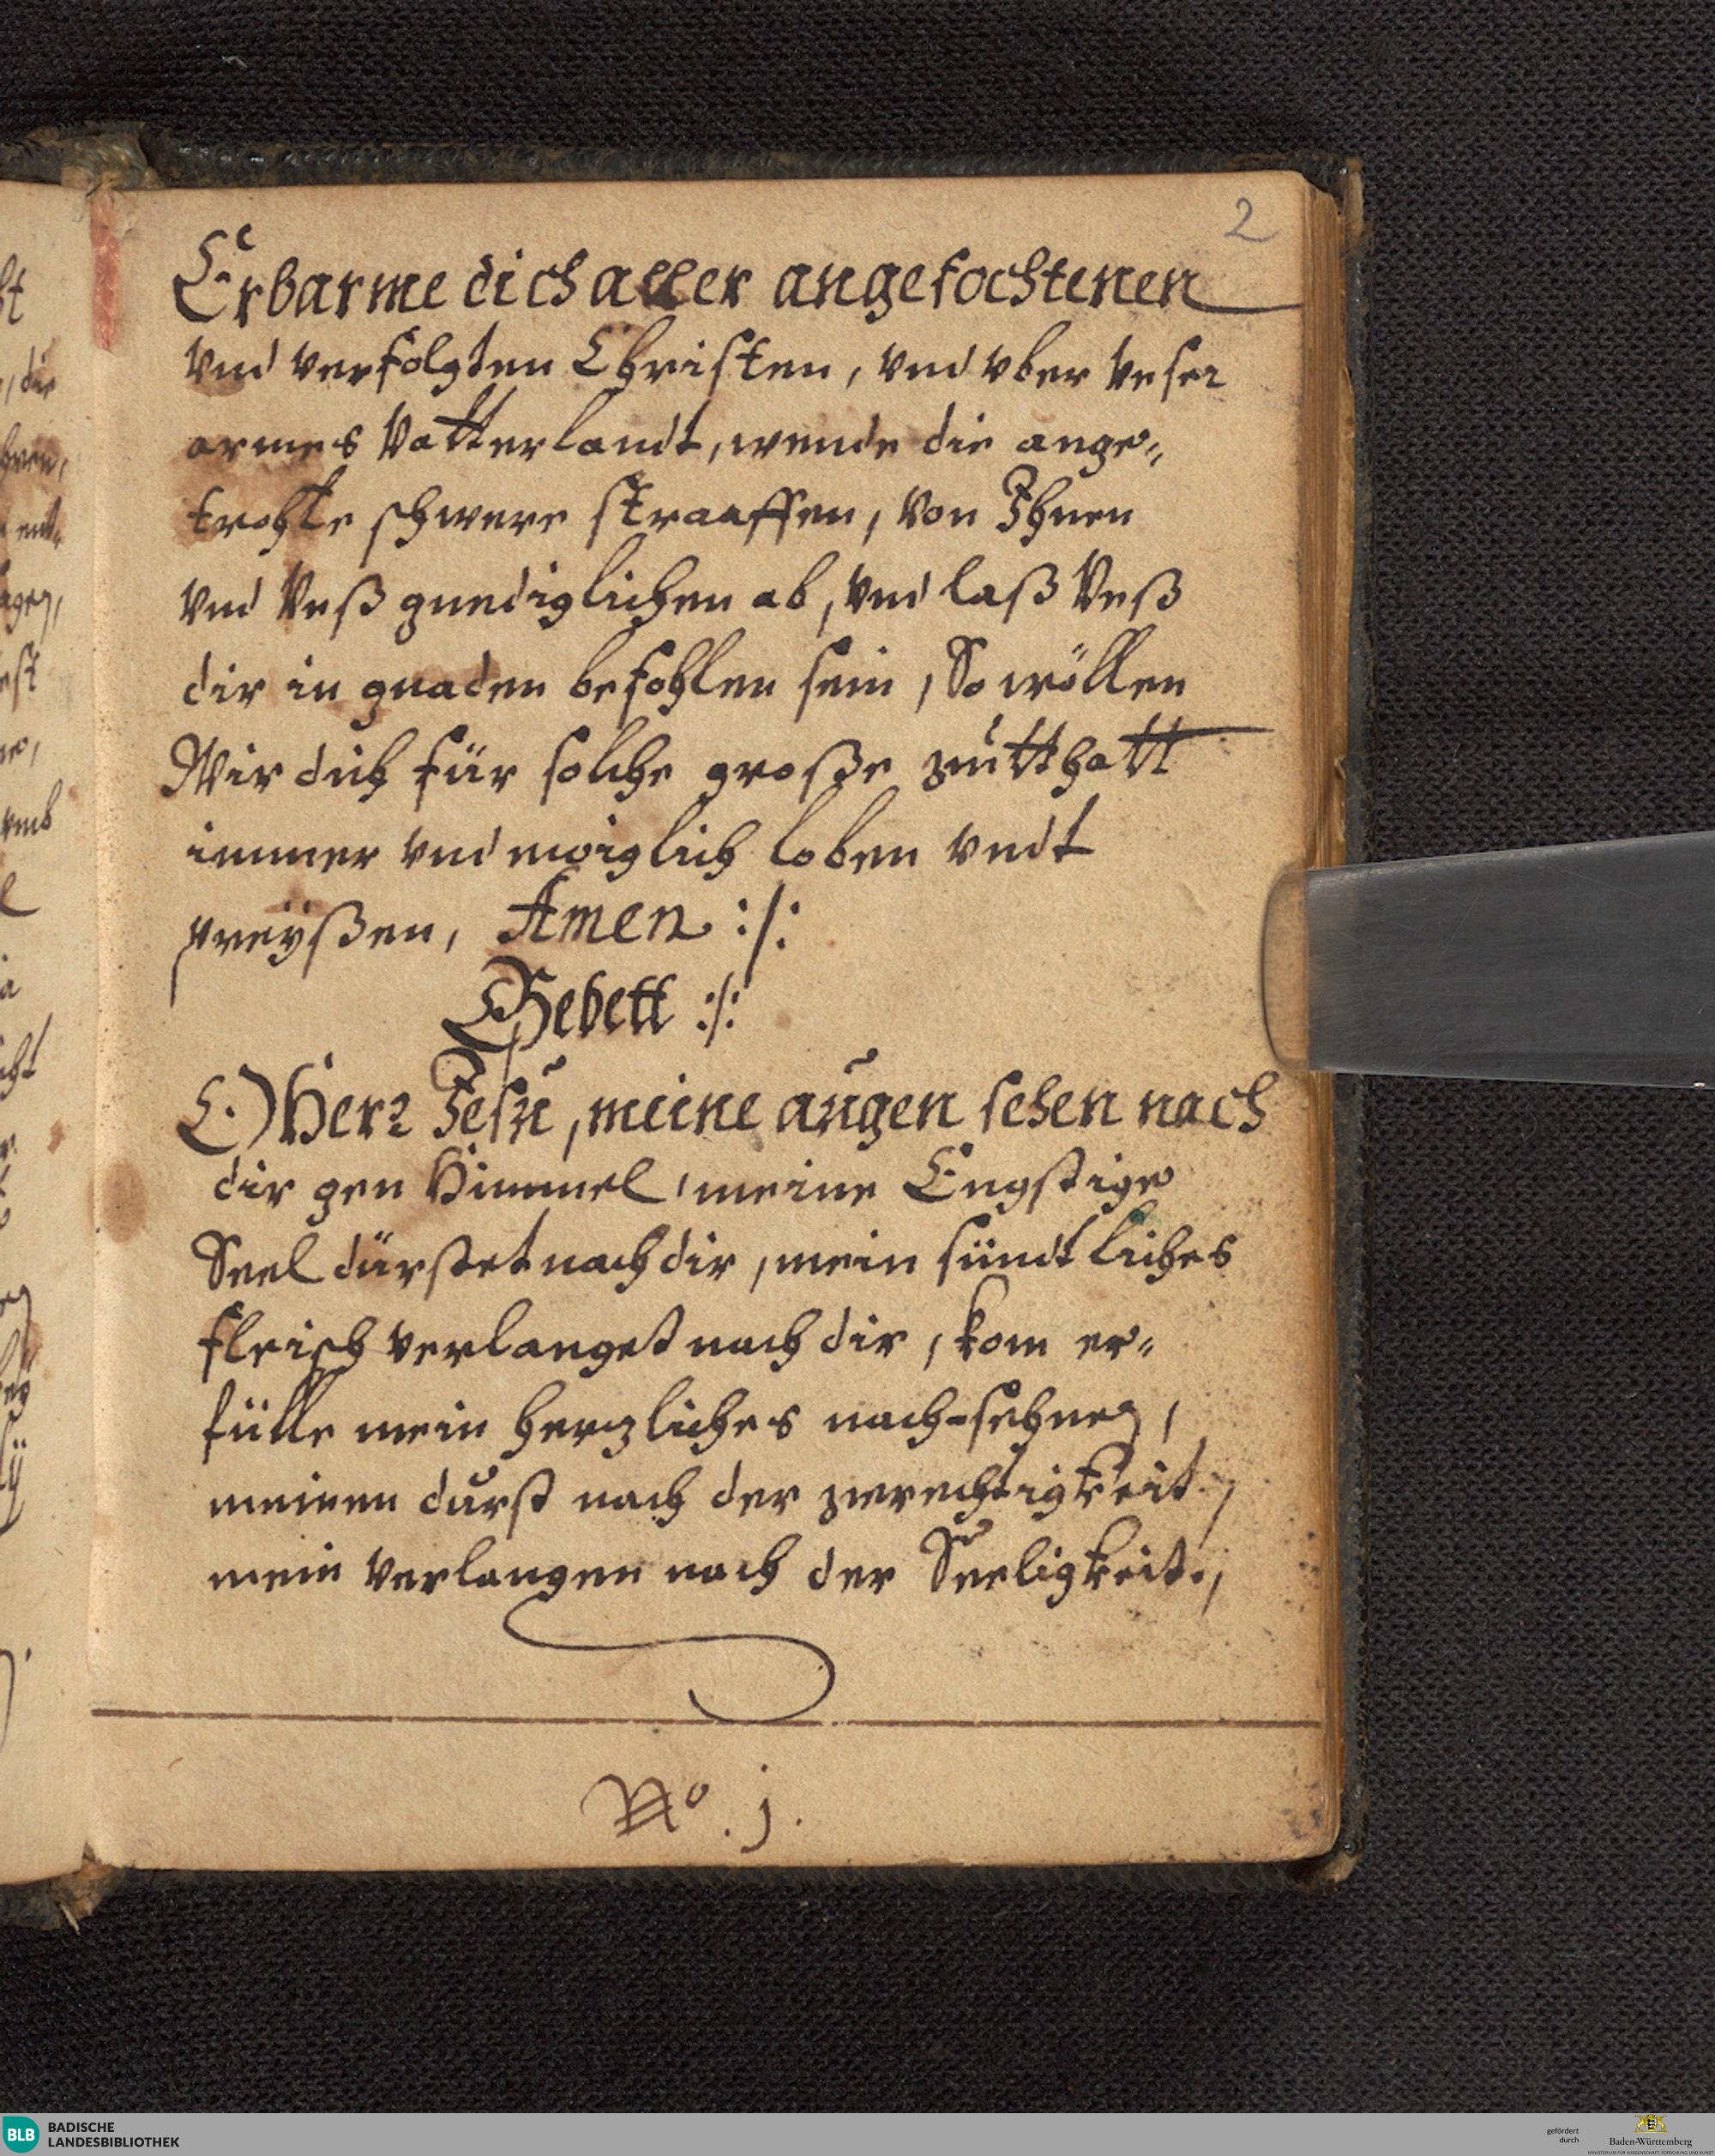 2
Erbarme dich aller angefochtenen
vnd verfolgten Christen, vnd vber vnser
armes Vatterlandt, wende die ange„
trohte schwere straaffen, von Ihnen
vnd Vnß gnediglichen ab, vnd laß Vnß
dir in gnaden befohlen sein, So wöllen
Wir dich für solche große gutthatt
immer vnd ewiglich loben vndt
preyßen, Amen :/:
Gebett :/:
O Herr Jesu, meine augen sehen nach
dir gen Himmel, meine Engstige
Seel dürstet nach dir, mein sündtliches
fleisch verlanget nach dir, kom er„
fülle mein herzliches nach-sehnen,
meinen durst nach der gerechtigkeit,
mein verlangen nach der Seeligkeit,
No. j.
BLB BADISCHE
LANDESBIBLIOTHEK
gefördert
durch
Baden-Württemberg
MINISTERIUM FÜR WISSENSCHAFT, FORSCHUNG UND KUNST